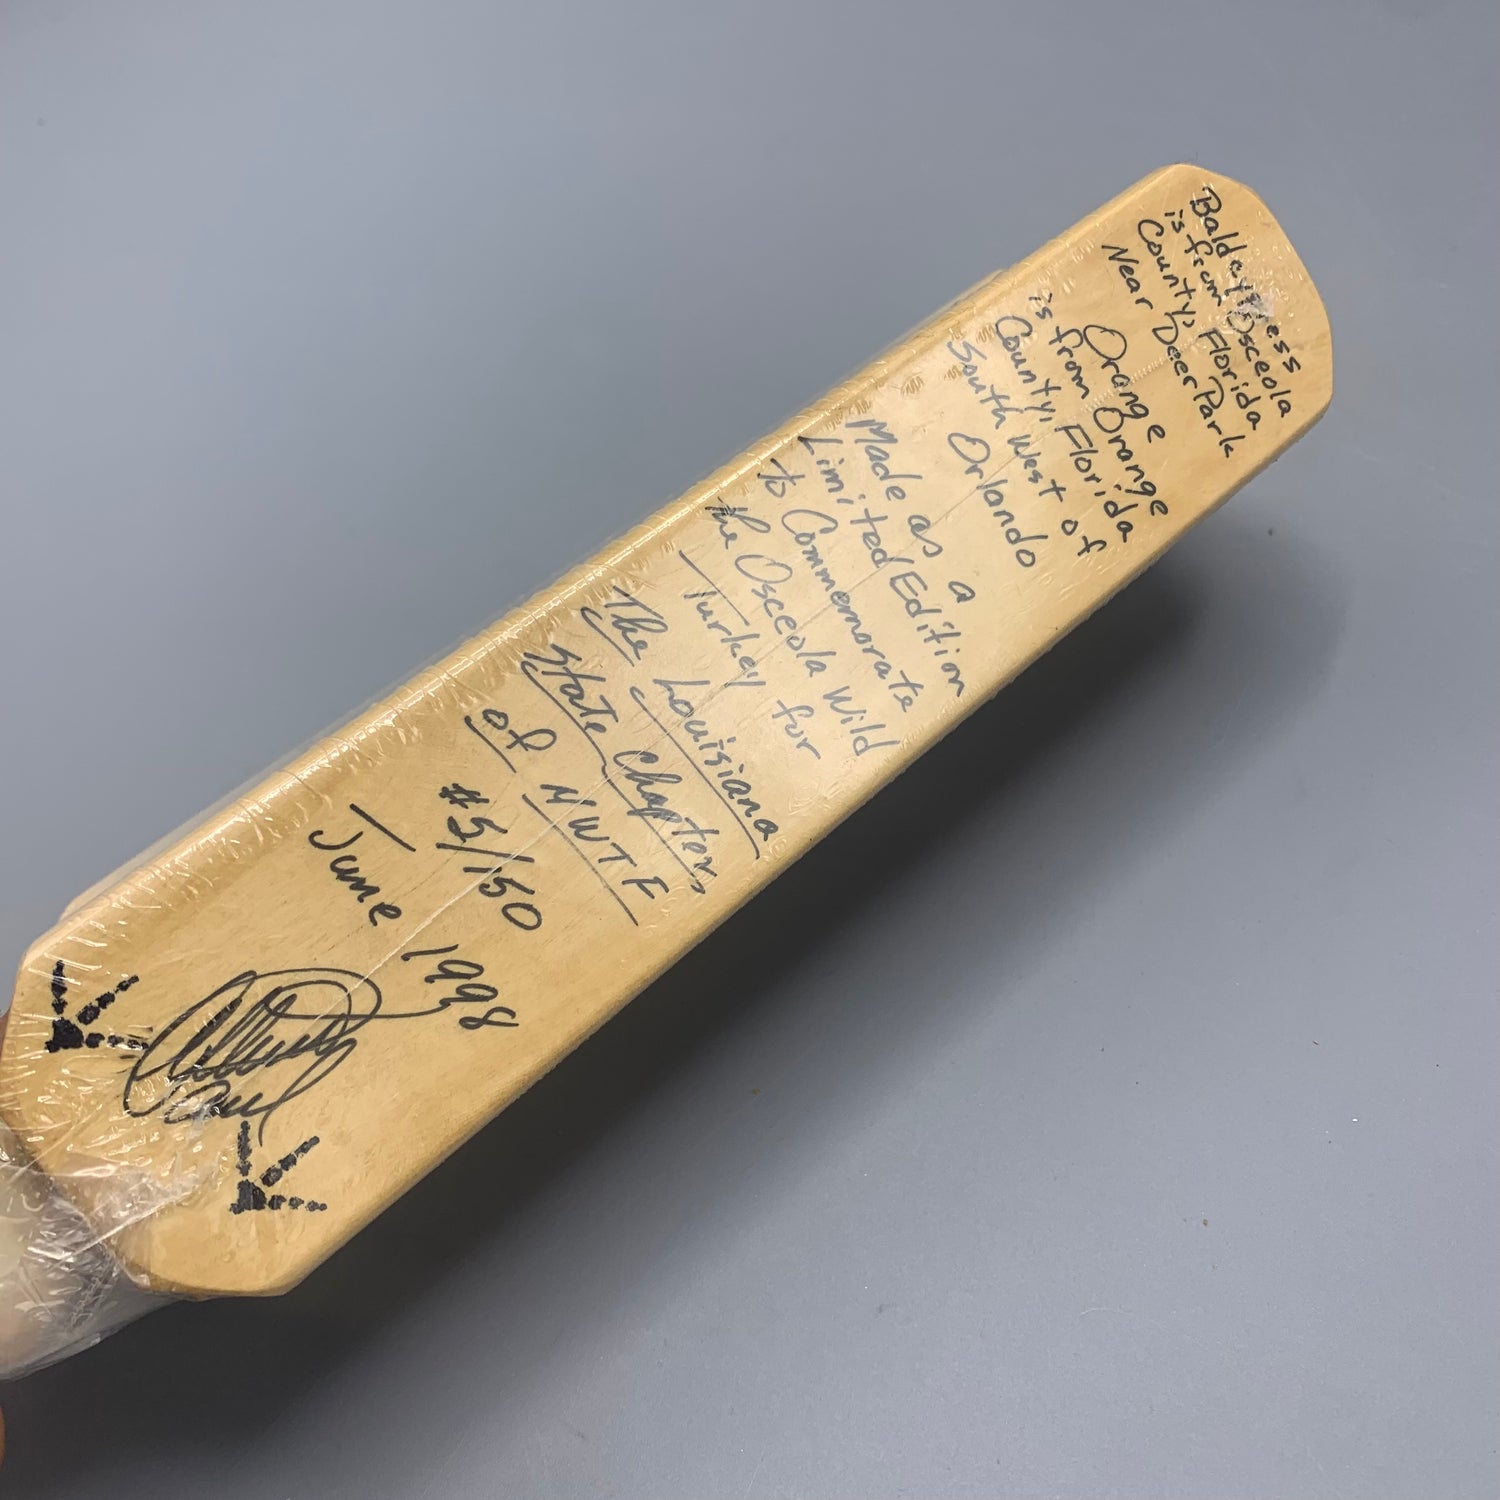 Baldcypress
is from Osceola
County, Florida
Near Deer Park
Orange
is from Orange
County, Florida
South West of
Orlando
Made as a
Limited Edition
to Commemorate
the Osceola Wild
Turkey for
The Louisiana
State Chapter
of NWTF
#5/150
June 1998